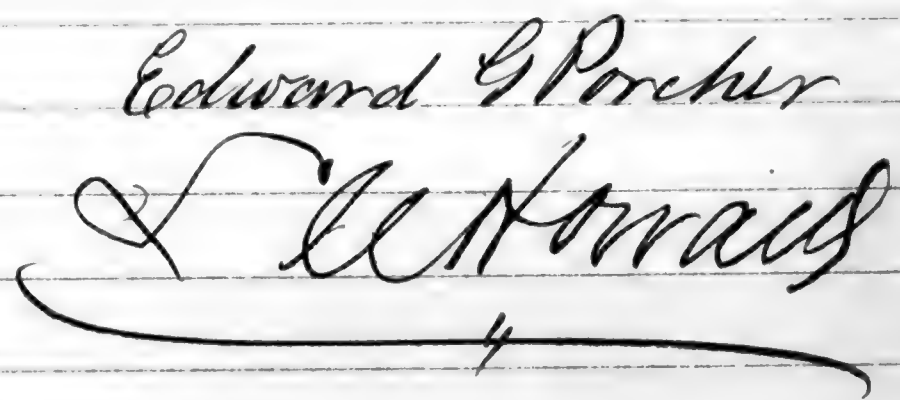 Edward G Porcher
& CC Howard
4